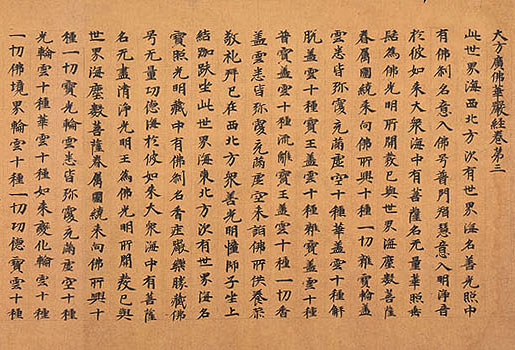 大方廣佛華嚴経卷第三
此世界海西北方次有世界海名善光照中
有佛刹名意入佛号普門慧意入明淨音
於彼如来大衆海中有菩薩名无量華照垂
髻為佛光明所開發已與世界海塵數菩薩
眷属圍繞来向佛所興十種一切雜寶輪盖
雲悉皆弥覆充滿虚空十種華盖雲十種解
脱盖雲十種寶王盖雲十種雜寶盖雲十種
普寶盖雲十種流離寶王盖雲十種一切香
盖雲悉皆弥覆充滿虚空来詣佛所供養恭
敬礼拜已在西北方衆善光明幢師子坐上
結跏趺坐此世界海東北方次有世界海名
寶照光明藏中有佛刹名香庄嚴樂勝藏佛
号无量功德海於彼如来大衆海中有菩薩
名无盡清淨光明王為佛光明所開發已與
世界海塵數菩薩眷属圍繞来向佛所興十
種一切寶光輪雲悉皆弥覆充滿虚空十種
光輪雲十種華雲十種如来變化輪雲十種
一切佛境界輪雲十種一切功德寶雲十種